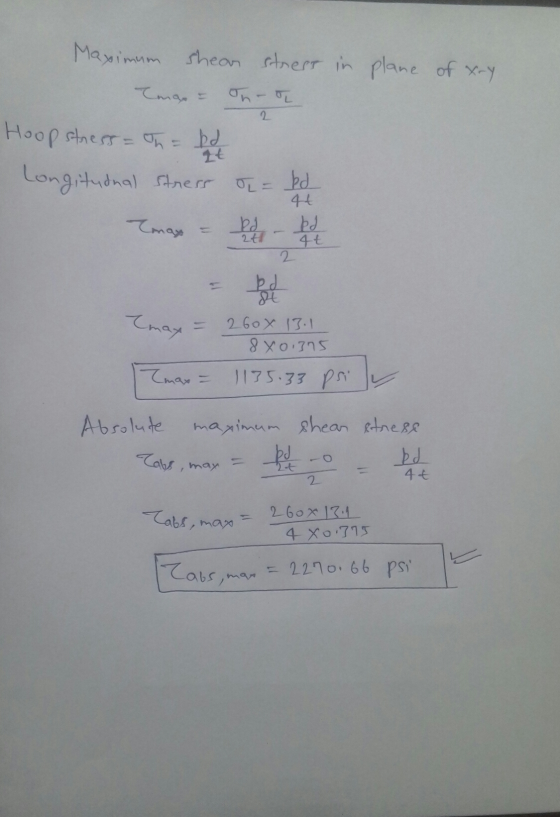 Maximum shear stress in plane of x-y
τmax = (σh - σL) / 2
Hoop stress = σh = pd / 2t
Longitudnal stress σL = pd / 4t
τmax = (pd / 2t - pd / 4t) / 2
= pd / 8t
τmax = 260 × 13.1 / 8 × 0.375
τmax = 1135.33 psi
Absolute maximum shear stress
τabs, max = (pd / 2t - 0) / 2 = pd / 4t
τabs, max = 260 × 13.1 / 4 × 0.375
τabs, max = 2270.66 psi